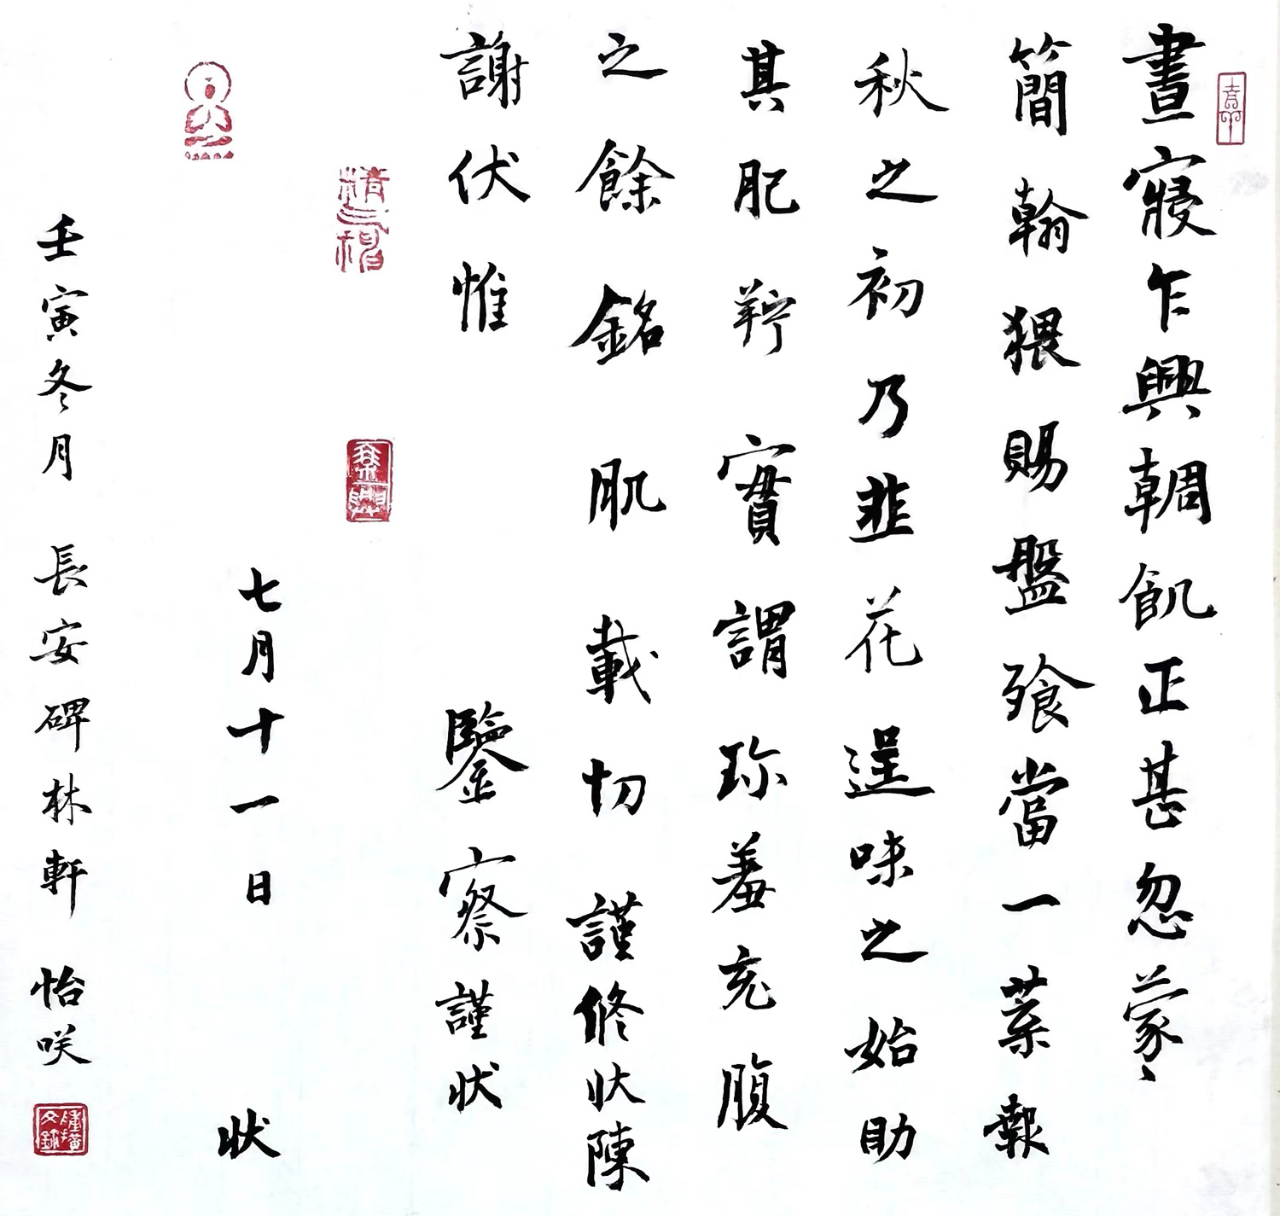 晝寢乍興輖飢正甚忽蒙
簡翰猥賜盤飱當一葉報
秋之初乃韭花逞味之始助
其肥羜實謂珍羞充腹
之餘銘肌載切謹修狀陳
謝伏惟鑒察謹狀
七月十一日狀
壬寅冬月長安碑林軒怡咲